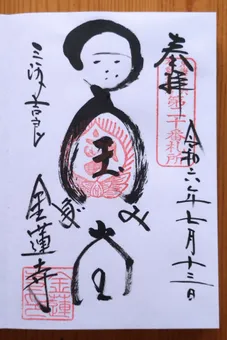 奉拝
令和六年七月十三日
番札所
王
み
三河吉良
金蓮寺
金蓮